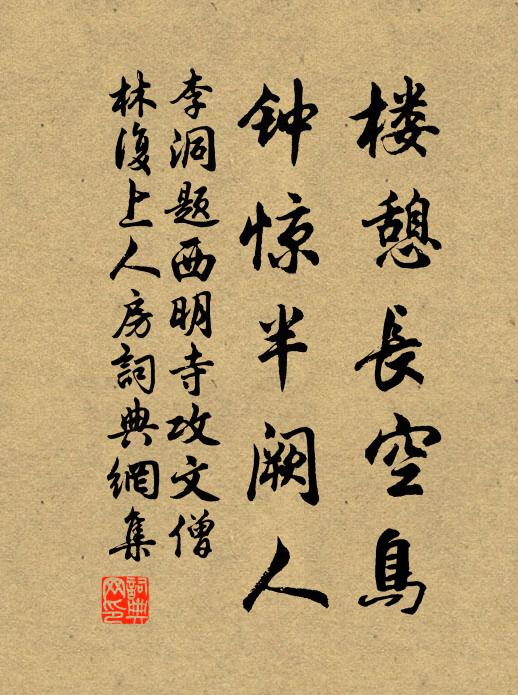 楼憩長空鳥
钟惊半阙人
李洞题西明寺攻文僧
林復上人房詞典網集
詞典網印